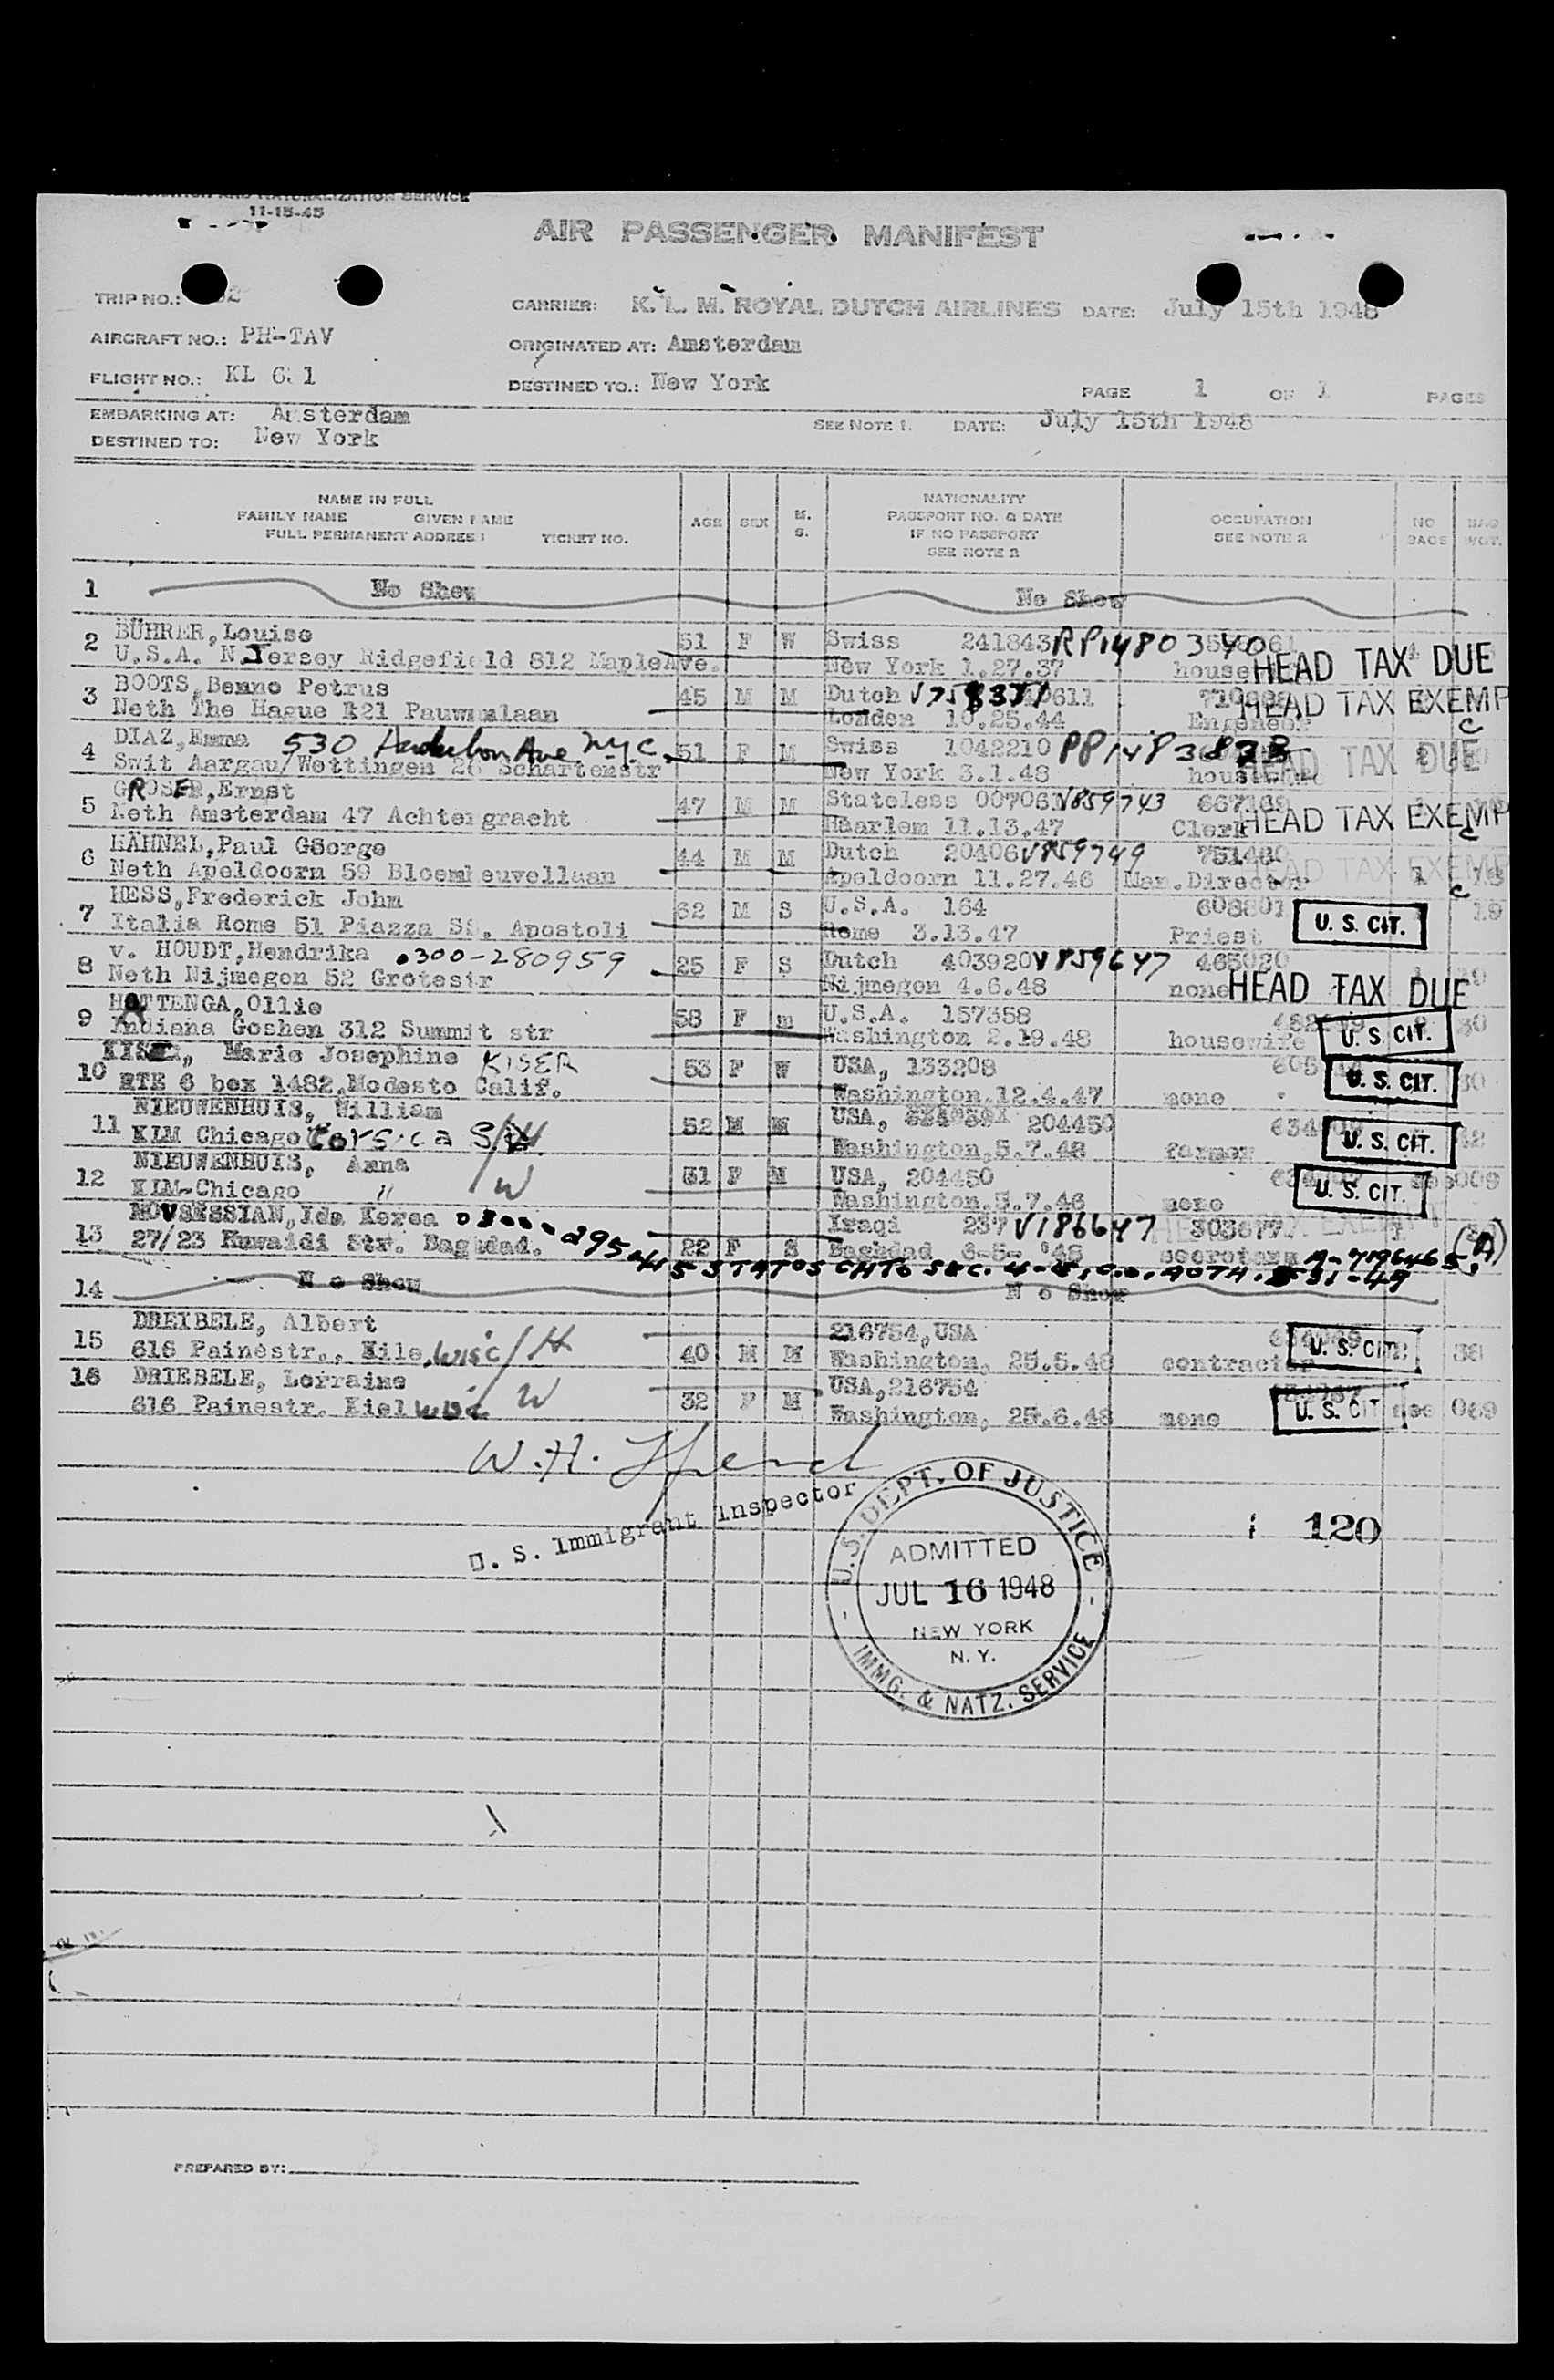 IMMIGRATION AND NATURALIZATION SERVICE
11-15-45
AIR PASSENGER MANIFEST
TRIP NO.:
CARRIER: K. L. M. ROYAL DUTCH AIRLINES DATE: July 15th 1948
AIRCRAFT NO.: PH-TAV
ORIGINATED AT: Amsterdam
FLIGHT NO.: KL
DESTINED TO.: New York
PAGE 1 OF 1 PAGES
EMBARKING AT: Amsterdam
SEE NOTE 1. DATE: July 15th 1948
DESTINED TO: New York
NAME IN FULL
FAMILY NAME GIVEN NAME
FULL PERMANENT ADDRESS TICKET NO.
AGE SEX M. S.
NATIONALITY
PASSPORT NO. & DATE
IF NO PASSPORT
SEE NOTE 2
OCCUPATION
SEE NOTE 2
NO BAGS
BAG WGT.
1 No Show No Show
2 BÜHRER, Louise 51 F W Swiss 241843
U.S.A. N Jersey Ridgefield 812 MapleAve. New York 1.27.37 HEAD TAX DUE
3 BOOTS, Benno Petrus 45 M M Dutch
Neth The Hague Londen 10.25.44 HEAD TAX EXEMP
4 DIAZ, Emma 530 Audubon Ave N.Y.C. 51 F M Swiss 1042210
Swit Aargau/Wettingen 26 Schartenstr New York 3.1.48 HEAD TAX DUE
5 Ernst 47 M M Stateless V859743
Neth Amsterdam 47 Achtergracht Haarlem 11.13.47 Clerk HEAD TAX EXEMP
6 HÄHNEL, Paul George 44 M M Dutch 20406 V859749
Neth Apeldoorn 59 Apeldoorn 11.27.46 Man.Director HEAD TAX EXEMP
7 HESS, Frederick John 62 M S U.S.A. 164
Italia Rome 51 Piazza SS. Apostoli Rome 3.13.47 Priest U. S. CIT. 19
8 v. HOUDT, Hendrika 0300-280959 25 F S Dutch 403920 V859647 465020
Neth Nijmegen 52 Grotestr Nijmegen 4.6.48 none HEAD TAX DUE
9 HATTENGA, Ollie 58 F m U.S.A. 157358
Indiana Goshen 312 Summit str Washington 2.19.48 housewife U. S. CIT. 30
10 Marie Josephine KISER 53 F W USA, 133208
RTE 6 box 1482, Modesto Calif. Washington.12.4.47 none U. S. CIT. 30
11 NIEUWENHUIS, William 52 M M USA, 204450
KLM Chicago Corsica S.D. /H Washington,5.7.48 farmer U. S. CIT. 42
12 NIEUWENHUIS, Anna 31 F M USA, 204450
KLM-Chicago " /W none U. S. CIT.
13 MOVSESSIAN, Ida Iraqi 237 V186647 303677
27/23 Ruwaidi Str. Bagdad. 22 F S Baghdad '48 secretary
STATUS
14 No Show No Show
15 DREIBELE, Albert 40 M M 216754, USA
616 Painestr., Wisc/H Washington, contractor U. S. CIT. 38
16 DRIEBELE, Lorraine 32 F M USA, 216754
616 Painestr. Kiel Wisc W Washington, none U. S. CIT 069
W.H.
U. S. Immigrant Inspector
120
U.S. DEPT. OF JUSTICE
ADMITTED
JUL 16 1948
NEW YORK
N. Y.
IMMG. & NATZ. SERVICE
PREPARED BY: